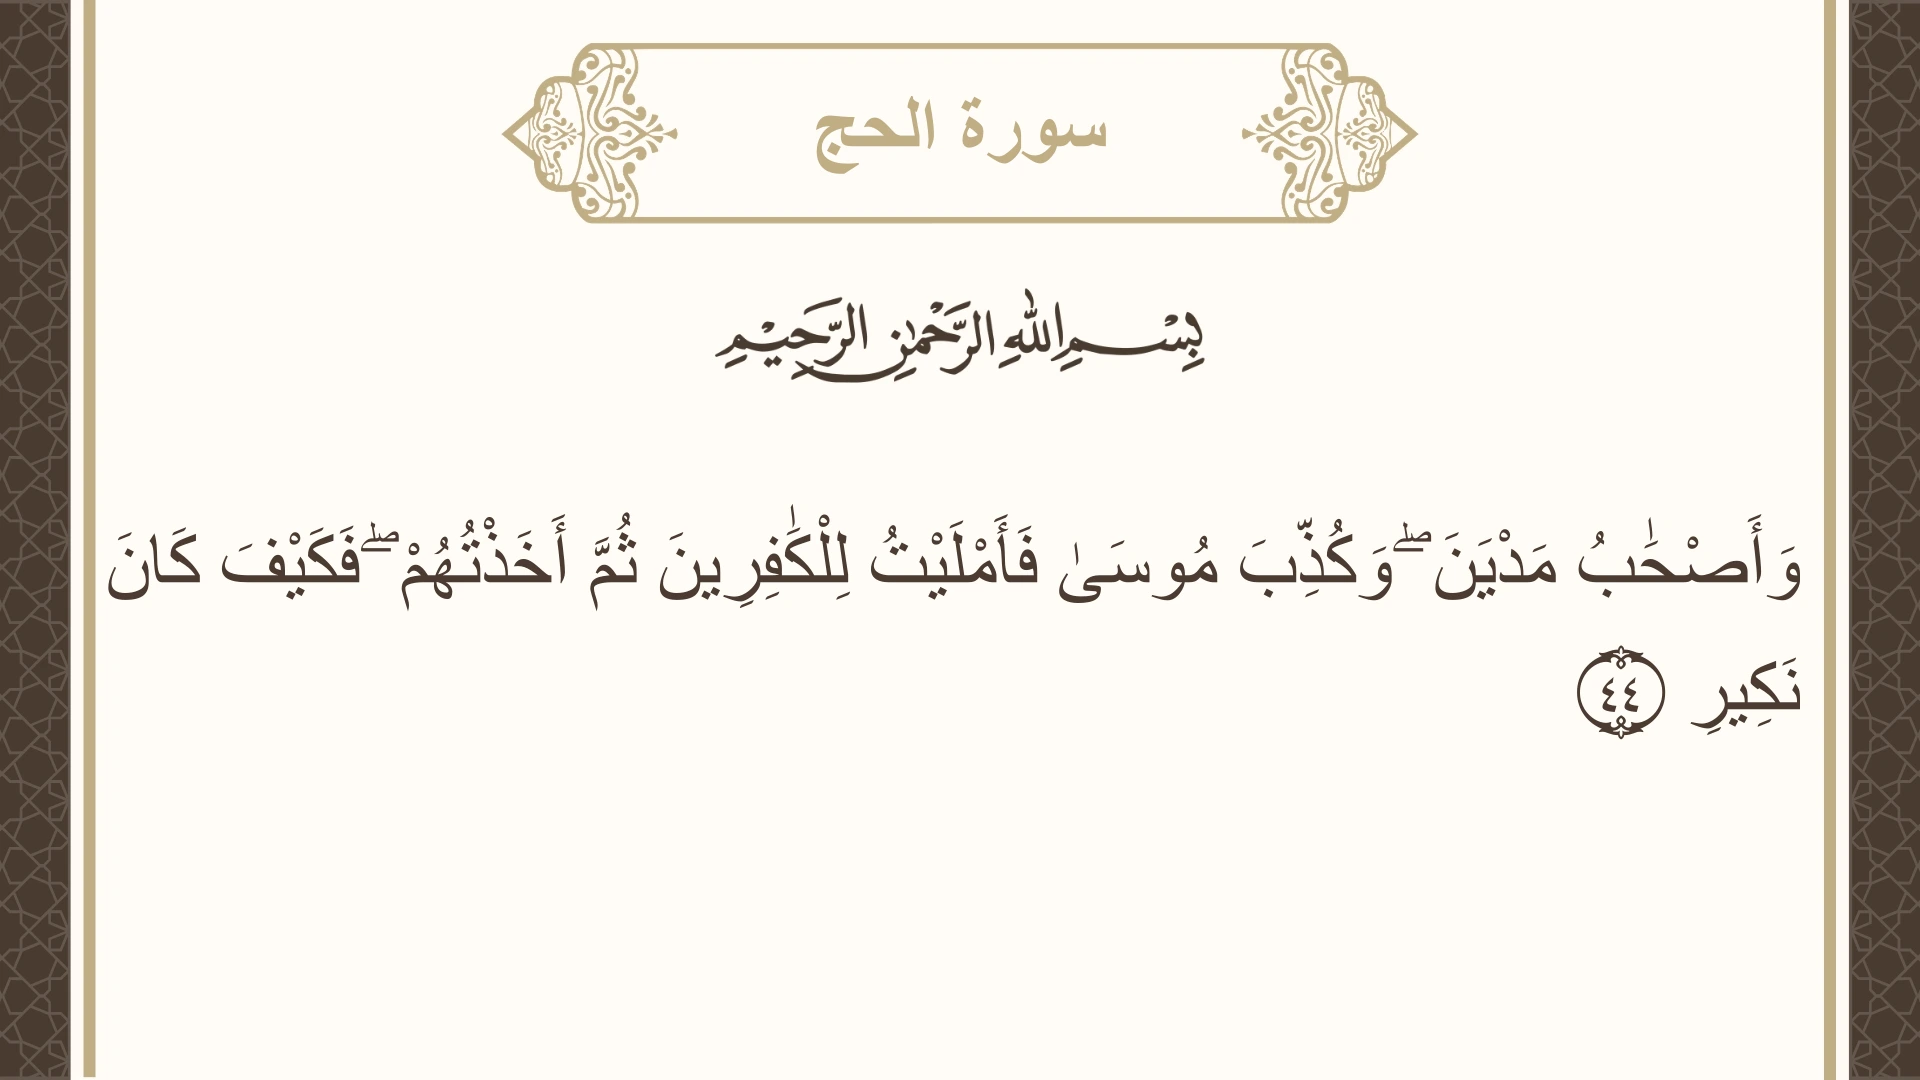 سورة الحج
بِسْمِ اللهِ الرَّحْمٰنِ الرَّحِيْمِ
وَأَصْحَٰبُ مَدْيَنَ ۖ وَكُذِّبَ مُوسَىٰ فَأَمْلَيْتُ لِلْكَٰفِرِينَ ثُمَّ أَخَذْتُهُمْ ۖ فَكَيْفَ كَانَ
نَكِيرِ ٤٤